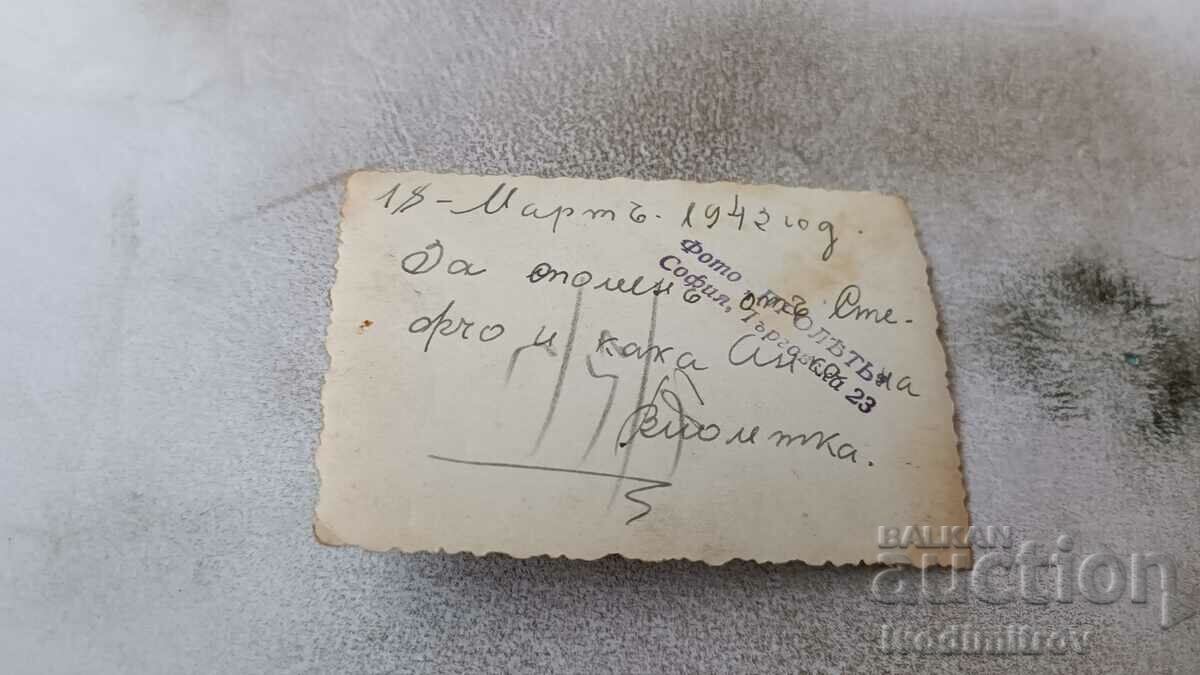 18 - Мартъ. 1942 год.
За споменъ отъ Сте-
фчо и кака Анка на
Виолетка.
Фото
София, Търговска 23
BALKAN
auction
ikodimitrov